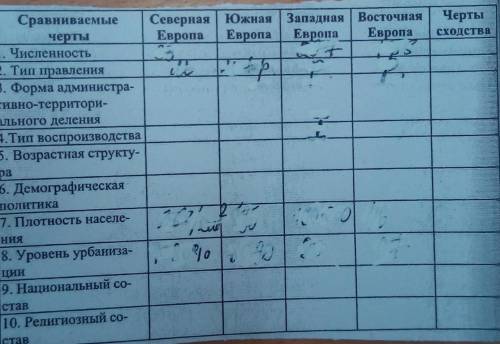 Сравниваемые черты | Северная Европа | Южная Европа | Западная Европа | Восточная Европа | Черты сходства
1. Численность
2. Тип правления
3. Форма администра-
тивно-территори-
ального деления
4.Тип воспроизводства
5. Возрастная структу-
ра
6. Демографическая
политика
7. Плотность населе-
ния
8. Уровень урбаниза-
ции
9. Национальный со-
став
10. Религиозный со-
став